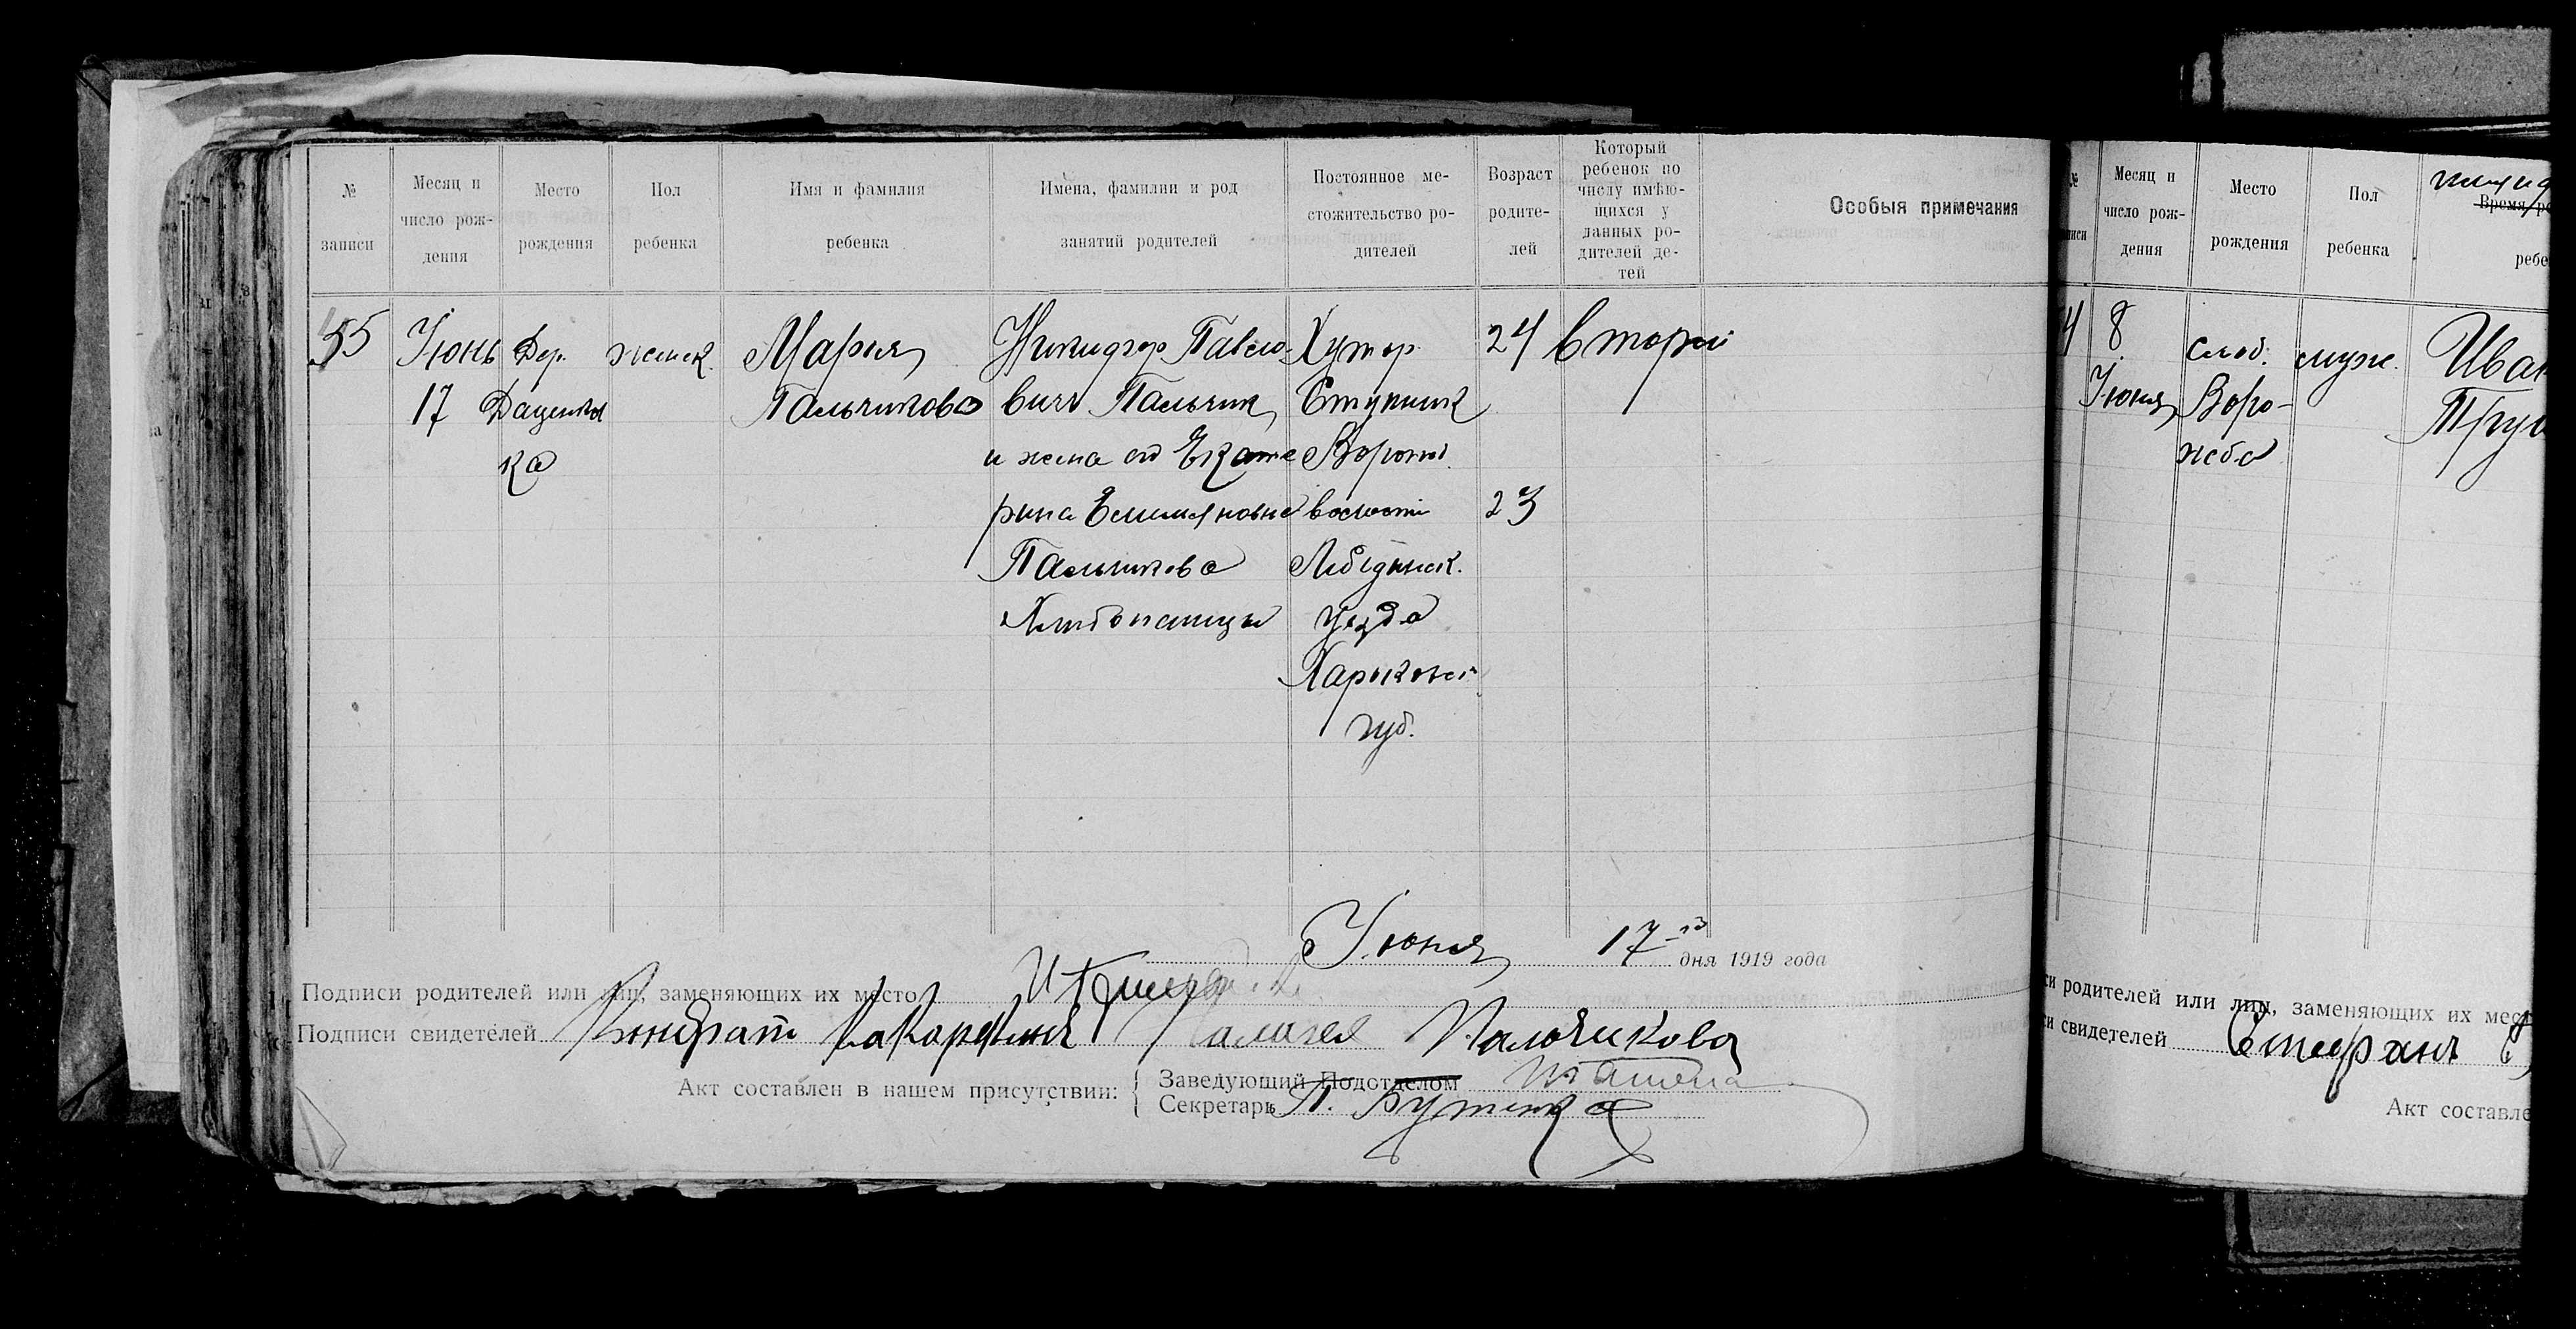 № записи
Месяц и число рождения
Место рождения
Пол ребенка
Имя и фамилия ребенка
Имена, фамилии и род занятий родителей
Постоянное местожительство родителей
Возраст родителей
Который ребенок по числу имѣющихся у данных родителей детей
Особыя примечания
55
Июнь
17
Дер.
Даценков
ка
женск.
Мария
Пальчикова
Никидфор Павло-
вич Пальчик
и жена его Екате
рина Емилияновна
Пальчикова
Хлибопашцы
Хутор
Ступник
Ворожб.
волости
Лебединск.
уезда
Харьковс.
губ.
24
23
второй
Июня 17-го дня 1919 года
Подписи родителей или лиц, заменяющих их место
Подписи свидетелей Кондрат Пальчикова
Акт составлен в нашем присутствии:
Заведующий Подотделом
Секретарь П. Бутенко
Месяц и число рождения
Место рождения
Пол ребенка
8
Июня
слоб.
Воро-
жба
муж.
Иван
си родителей или лиц, заменяющих их мес
си свидетелей Стефан
Акт составле